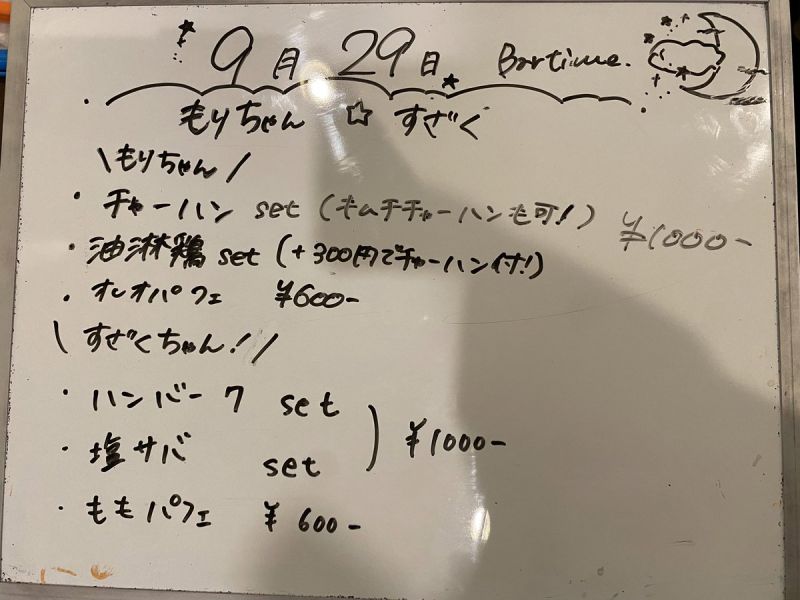 9月 29日 Bartime.
もりちゃん ☆ すざく
\もりちゃん/
・チャーハン set (キムチチャーハンも可!) ¥1000-
・油淋鶏 set (+300円でチャーハン付!)
・オレオパフェ ¥600-
\すざくちゃん!/
・ハンバーグ set
・塩サバ set ) ¥1000-
・ももパフェ ¥600-